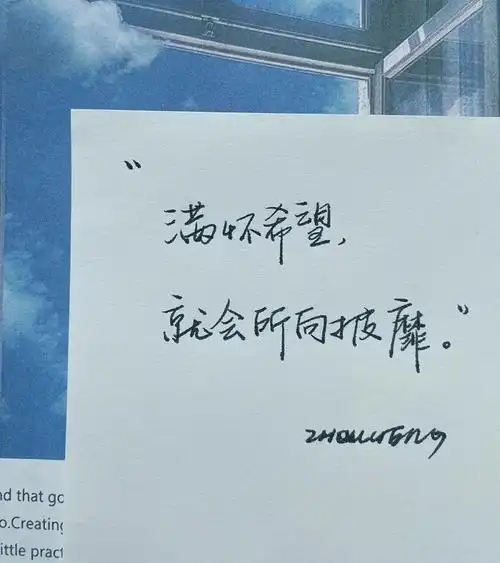 “
满怀希望，
就会所向披靡。”
nd that go
o.Creating
ittle pract